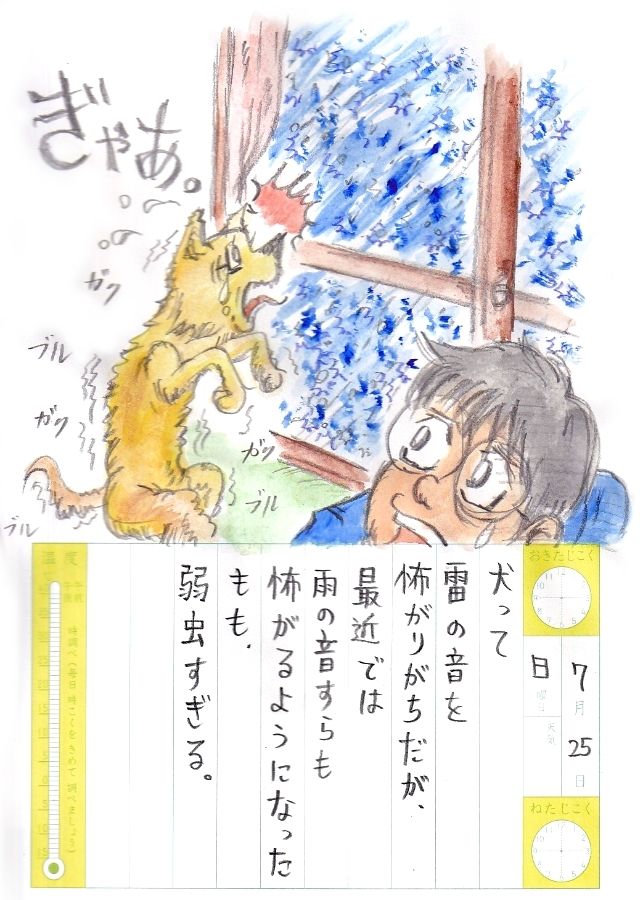 ぎゃあ。
ガク
ブル
ガク
ブル
ガク
ブル
おきたじこく
7月25日
日曜日
天気
ねたじこく
犬って
雷の音を
怖がりがちだが、
最近では
雨の音すらも
怖がるようになった
もも.
弱虫すぎる。
温度
午前
午後
時調べ(毎日 時こくをきめて 調べましょう)